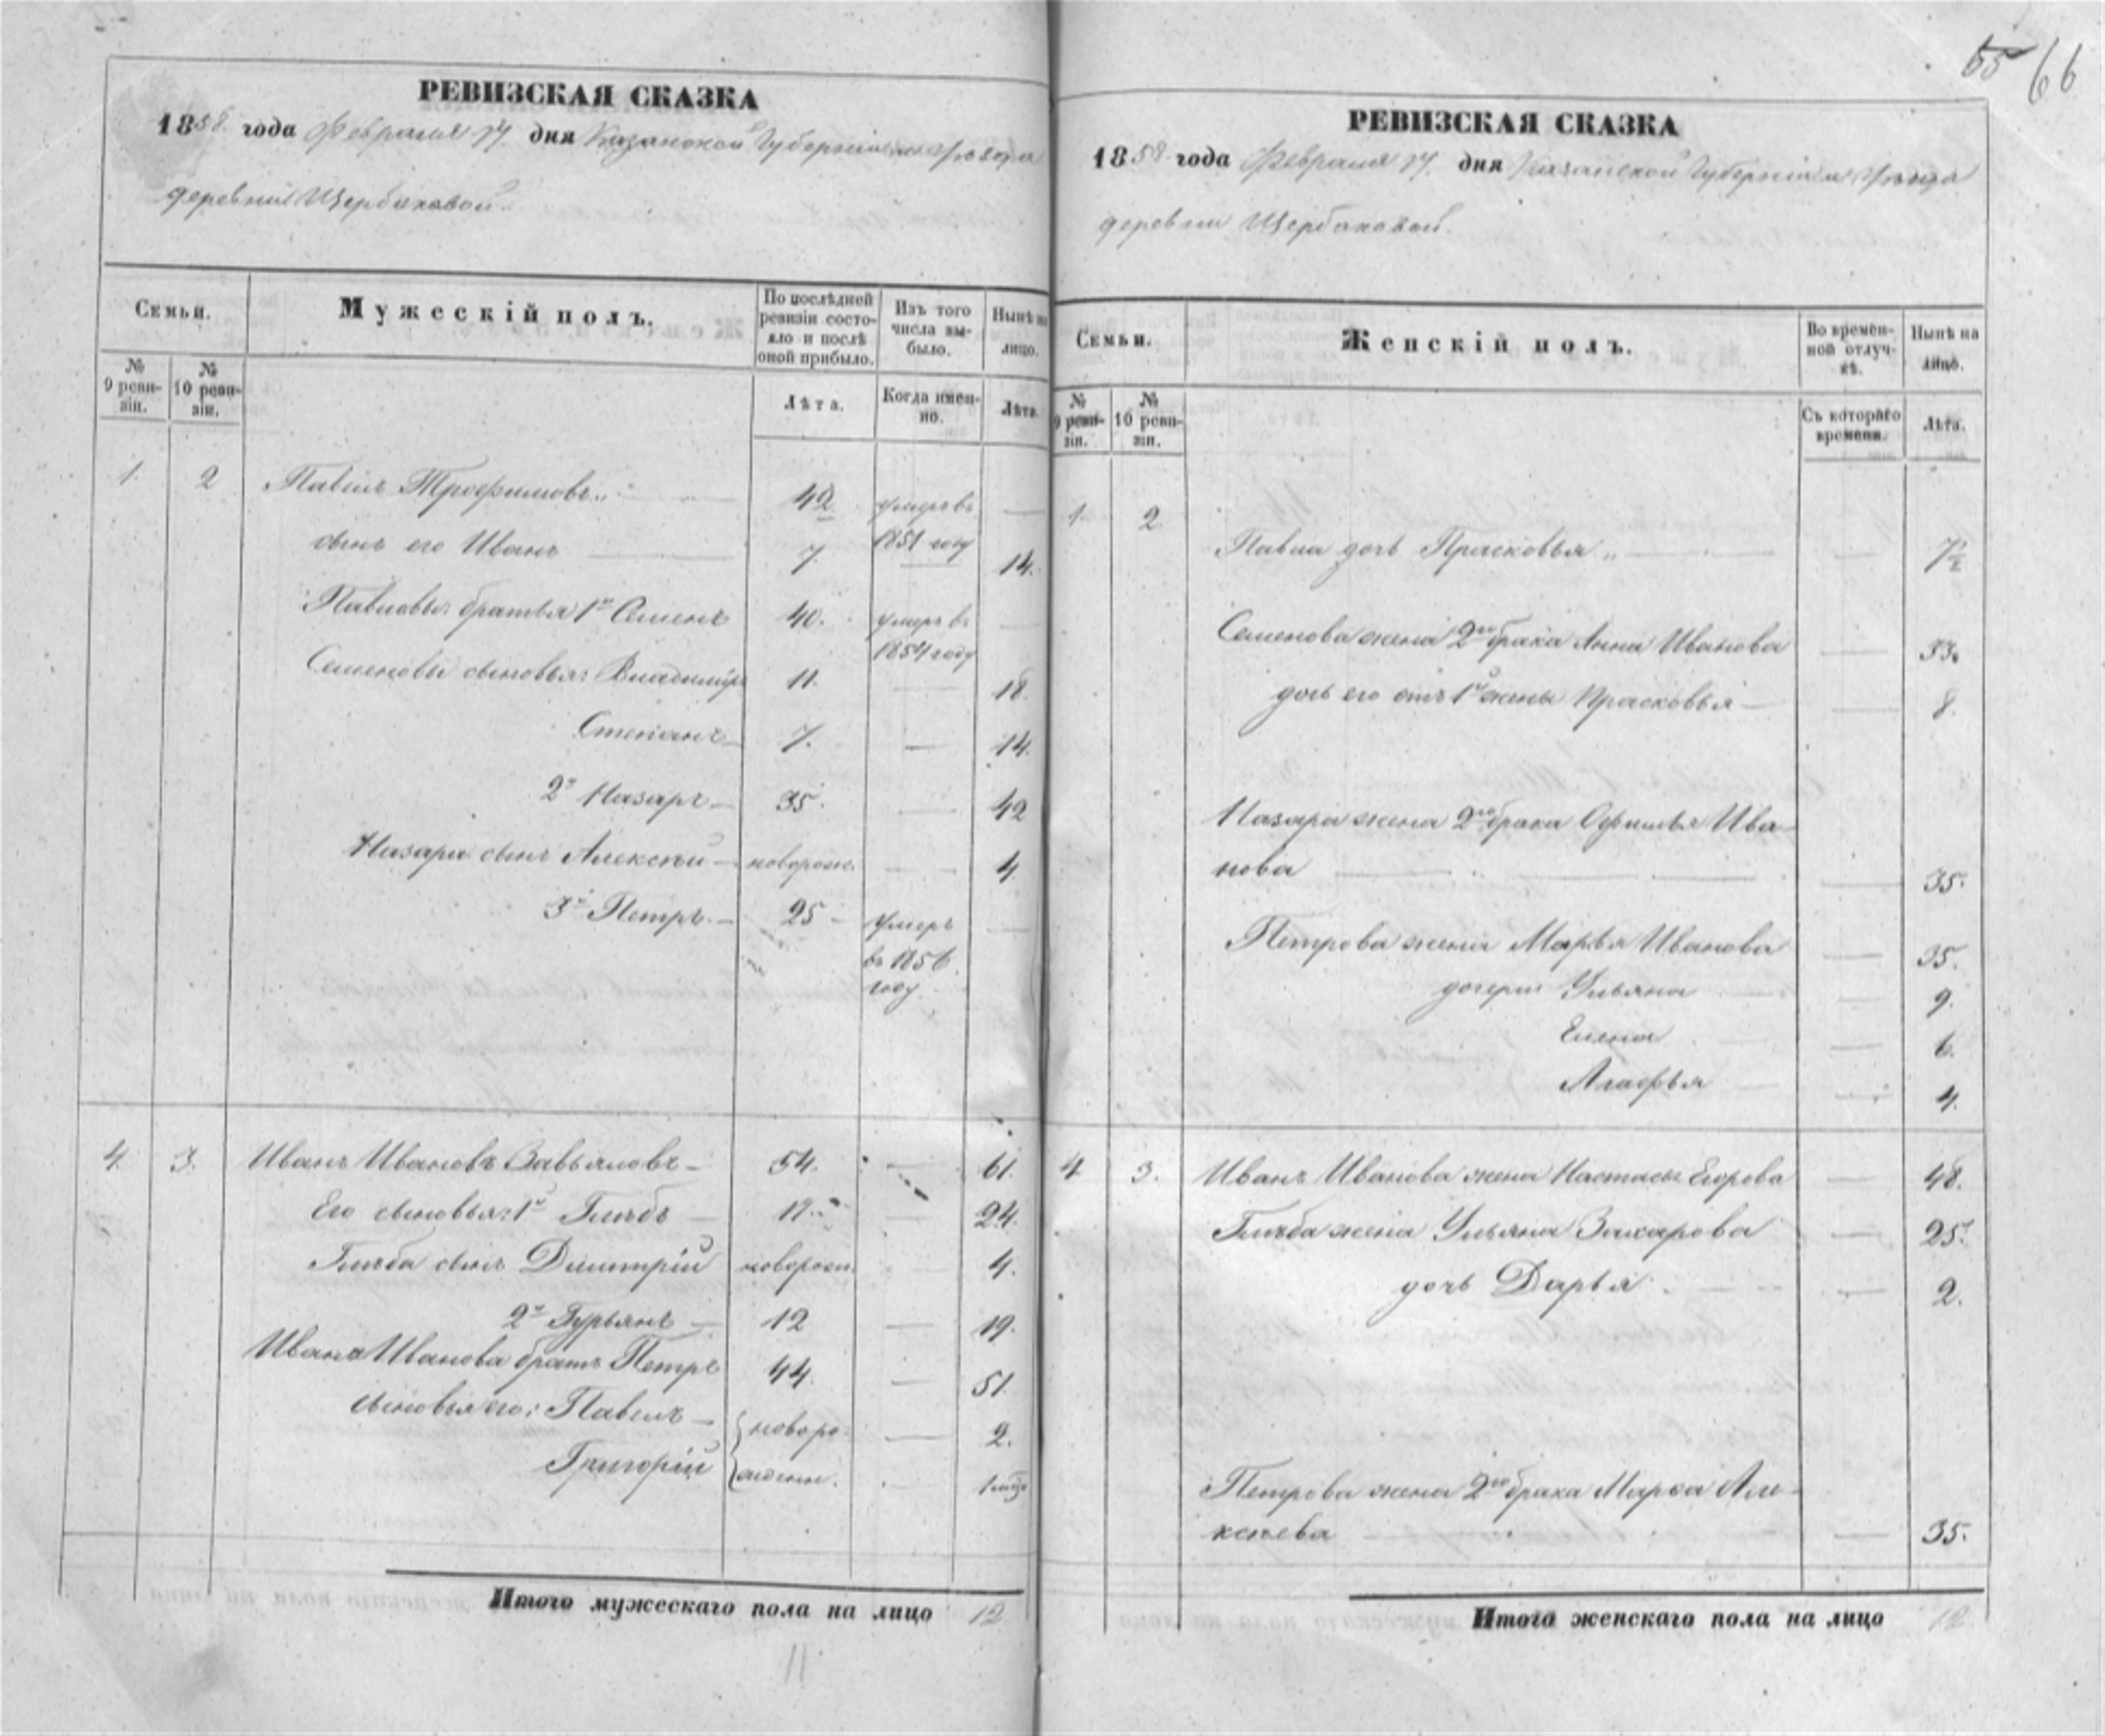 55 66
РЕВИЗСКАЯ СКАЗКА
1858 года Февраля 24 дня Казанской Губерніи
деревни Щербаковой.
Семьи.
Мужескій полъ.
По послѣдней ревизіи состояло и послѣ оной прибыло.
Изъ того числа выбыло.
Нынѣ на лицо.
№ 9 ревизіи.
№ 10 ревизіи.
Лѣта.
Когда именно.
Лѣта.
1. 2 Павелъ Трофимовъ 42 умеръ въ 1851 году
сынъ его Иванъ 7. 14.
Павловы братья 1й Семенъ 40. умеръ въ 1854 году
Семеновы сыновья: Владимиръ 11. 18.
Степанъ 7. 14.
2й Назаръ 35. 42
Назара сынъ Алексѣй новорож. 4
3й Петръ 25 умеръ въ 1856 году
4. 3. Иванъ Ивановъ Завьяловъ 54. 61.
Его сыновья: 1й Глѣбъ 17. 24.
Глѣба сынъ Димитрій новорожд. 4.
2й Гурьянъ 12 19.
Ивана Иванова братъ Петръ 44. 51.
сыновья его: Павелъ новоро- 2.
Григорій жденн. 1
Итого мужескаго пола на лицо 12
11
РЕВИЗСКАЯ СКАЗКА
1858 года Февраля 24 дня Казанской Губерніи
деревни Щербаковой.
Семьи.
Женскій полъ.
Во временной отлучкѣ.
Нынѣ на лицо.
№ 9 ревизіи.
№ 10 ревизіи.
Съ котораго времени.
Лѣта.
1. 2 Павла дочь Прасковья 7½
Семенова жена 2го брака Анна Иванова 33.
дочь его отъ 1й жены Прасковья 8.
Назара жена 2го брака Офимья Ива-
нова 35.
Петрова жена Марья Иванова 35.
дочери Ульяна 9.
Елена 6.
Агафья 4.
4 3. Иванъ Иванова жена Настасья Егорова 48.
Глѣба жена Ульяна Захарова 25.
дочь Дарья 2.
Петрова жена 2го брака Марѳа Але-
ксѣева 35.
Итого женскаго пола на лицо 12